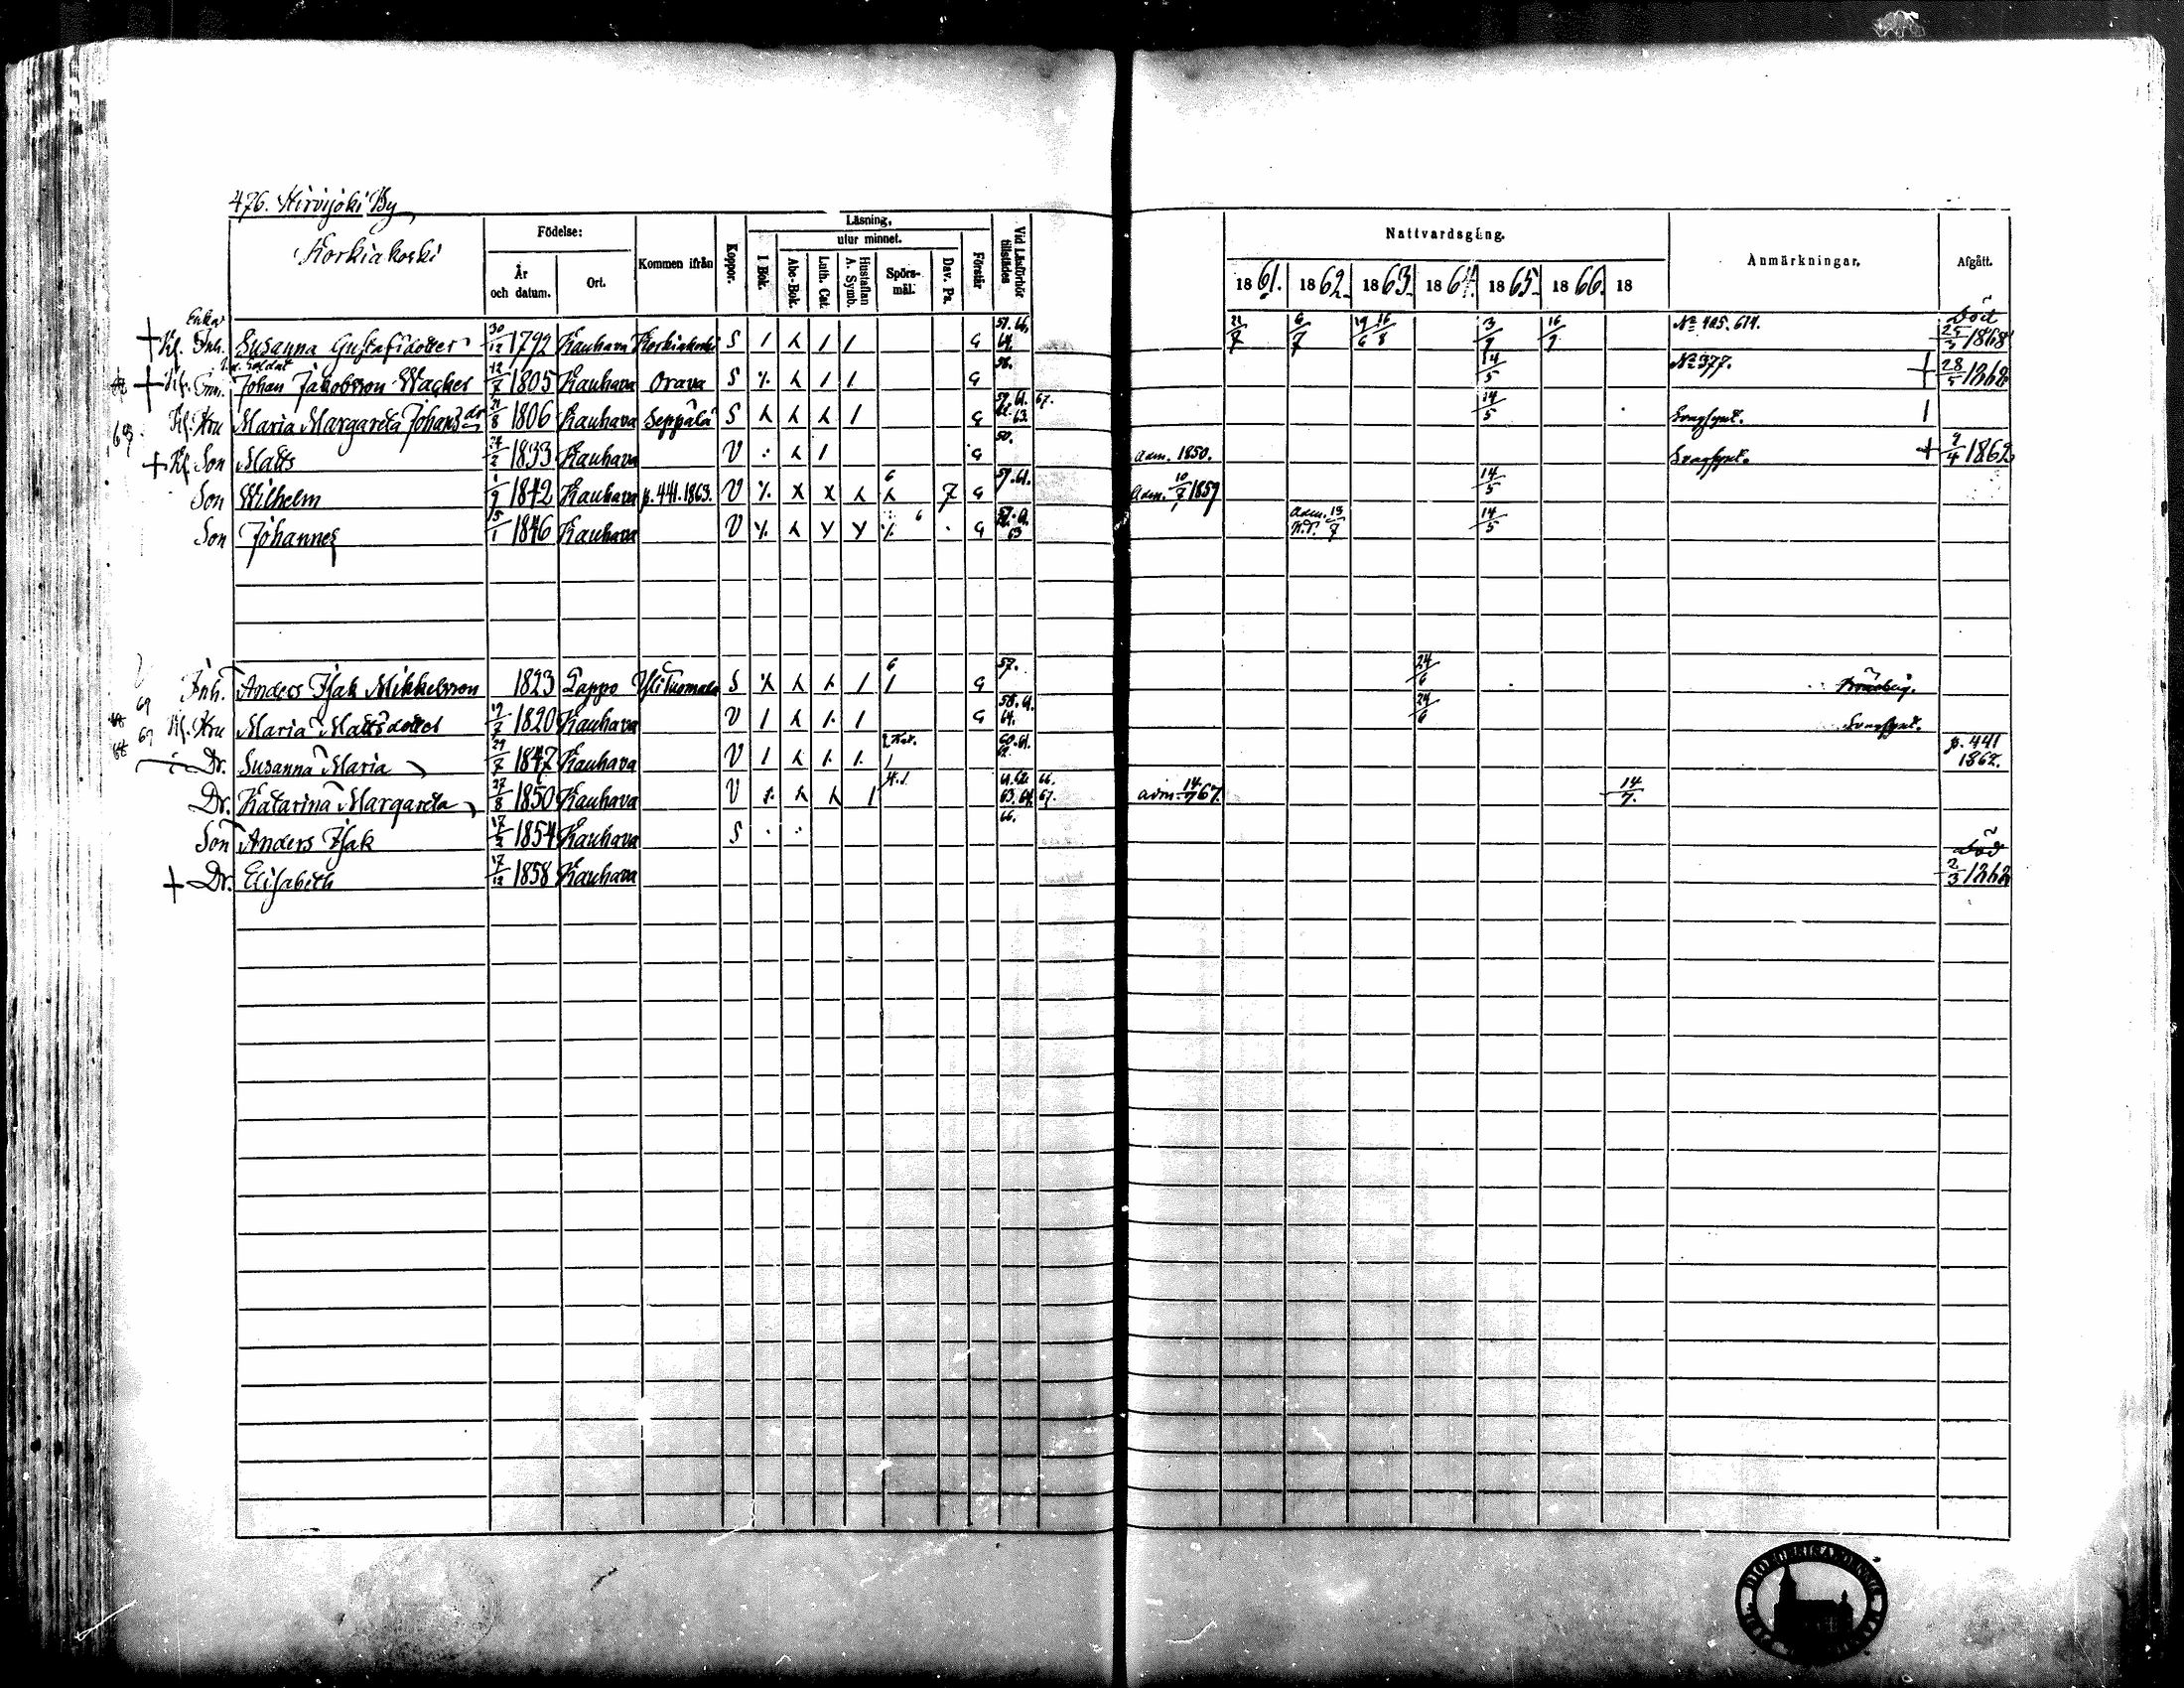 476. Hirvijoki By
Korkiakoski
Födelse:
År och datum.
Ort.
Kommen ifrån
Koppor.
Läsning,
I Bok.
utur minnet.
Abc-Bok.
Luth. Cat.
Hustaflan A. Symb.
Spörs-mål.
Dav. Ps.
Förstår
Vid Läsförhör tillstädes
Nattvardsgång.
1861. 1862. 1863. 1864. 1865. 1866. 18
Anmärkningar.
Afgått.
Enka
Inh. Susanna Gustafsdotter 30/12 1792 Kauhava Korkiakoski S G 21/7 6/7 16/9 Död 1868
Soldat
Johan Jakobsson Wacker 12/7 1805 Kauhava Orava S G 58. 14/5 No 377. 28/5 1868
Hru Maria Margareta Johansdr 1806 Kauhava Seppälä S G 67. 14/5
Son Matts 24/2 1833 Kauhava V G 50. adm. 1850. 1862
Son Wilhelm 1/9 1842 Kauhava p. 441. 1863. V 6 7 G 57. 61. adm. 10/7 1859 14/5
Son Johannes 15/1 1846 Kauhava V 6 G 63 adm. 13/7 14/5
Inh. Anders Isak Mikkelsson 1823 Lappo Yli Tuomala S 6 G 57. 24/6
Hru Maria Mattsdotter 19/7 1820 Kauhava V G 58. 61. 64. 24/6
Dr. Susanna Maria 29/7 1847 Kauhava V 60. 61. 62. p. 441 1862.
Dr. Katarina Margareta 27/8 1850 Kauhava V 61. 62. 66. 63. 64. 67. adm. 14/7 67. 14/7.
Son Anders Isak 17/2 1854 Kauhava S 66.
Död
Dr. Elisabeth 17/12 1858 Kauhava 2/3 1862